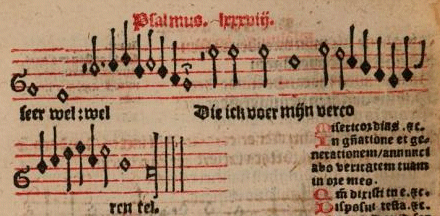 Psalmus. lxxxviij.
seer wel: wel Die ick voer mijn verco
ren tel.
Misericordias. &c.
In gñatione et ge-
nerationem/annunci
abo veritatem tuam
in ore meo.
Qm̄ dixisti in e. &c.
Disposui testa. &c.